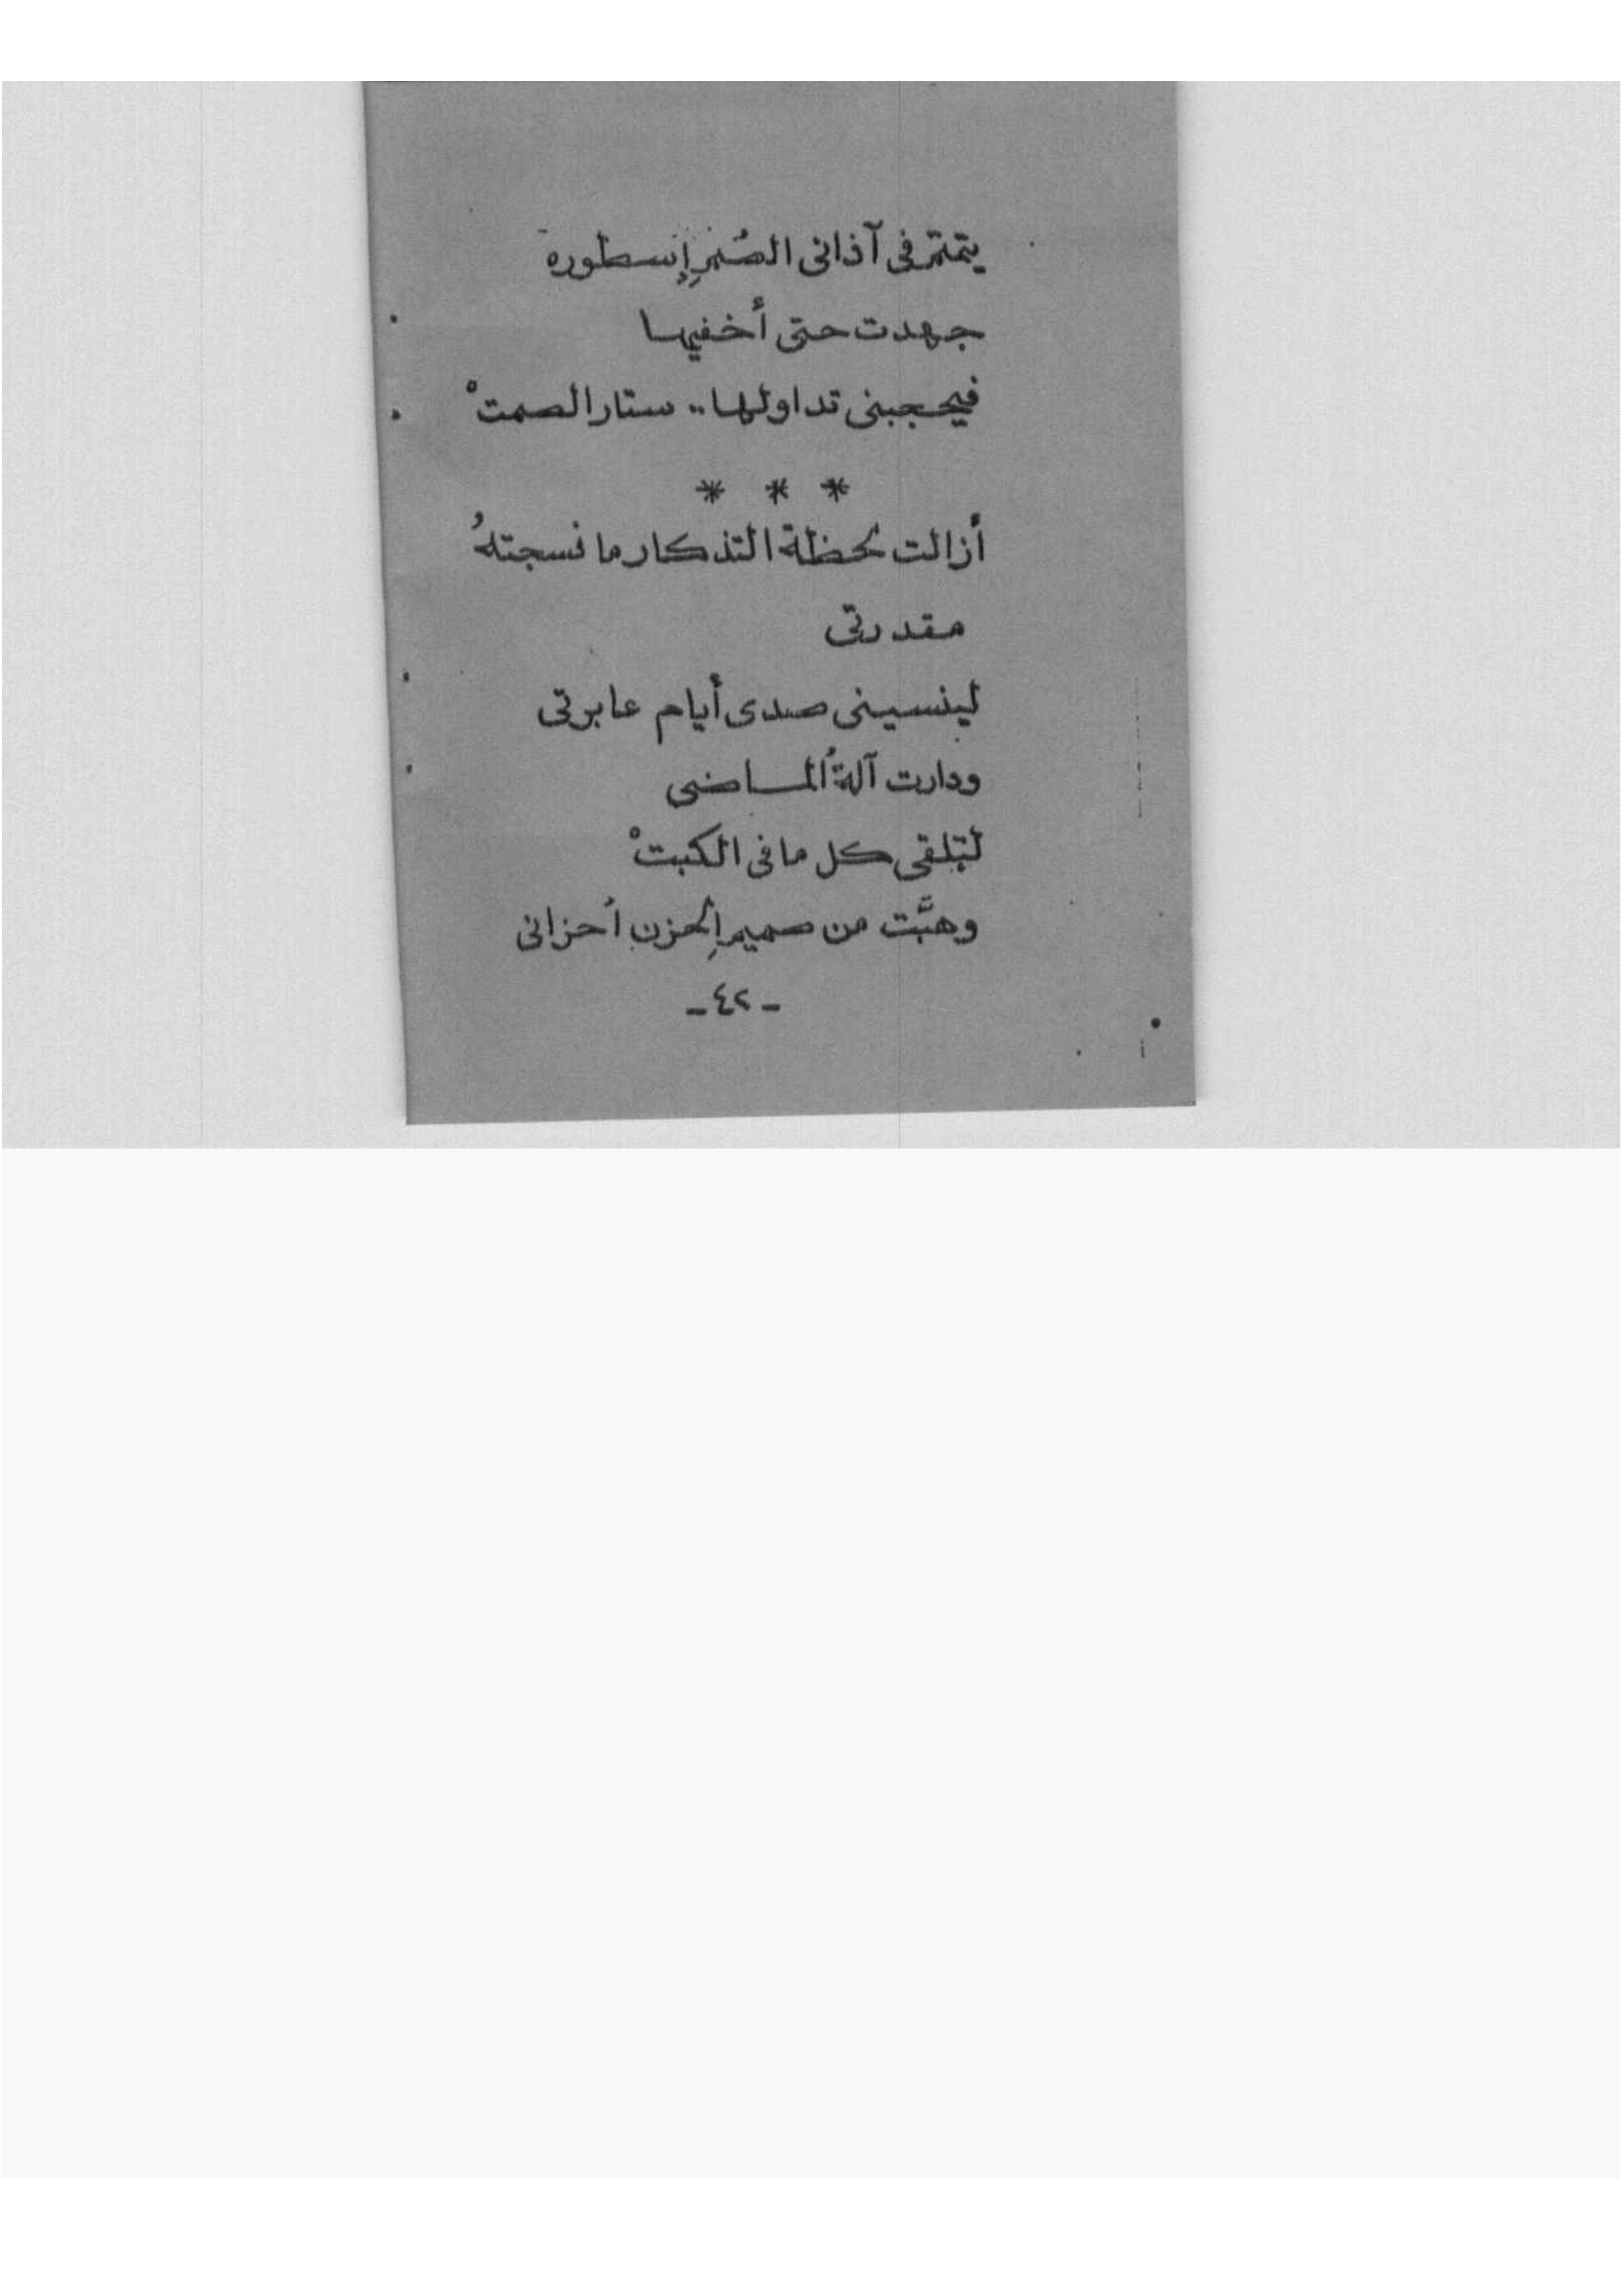 يتمتم فى آذانى الصُم إسطورة
جهدت حتى أخفيها
فيحجبنى تداولها.. ستار الصمتْ
* * *
أزالت لحظة التذكار ما نسجتهُ
مقدرتى
لينسينى صدى أيام عابرتى
ودارت آلةُ الماضى
لتلقى كل ما فى الكبتْ
وهبَّت من صميمِ الحزن أحزانى
- ٤٢ -